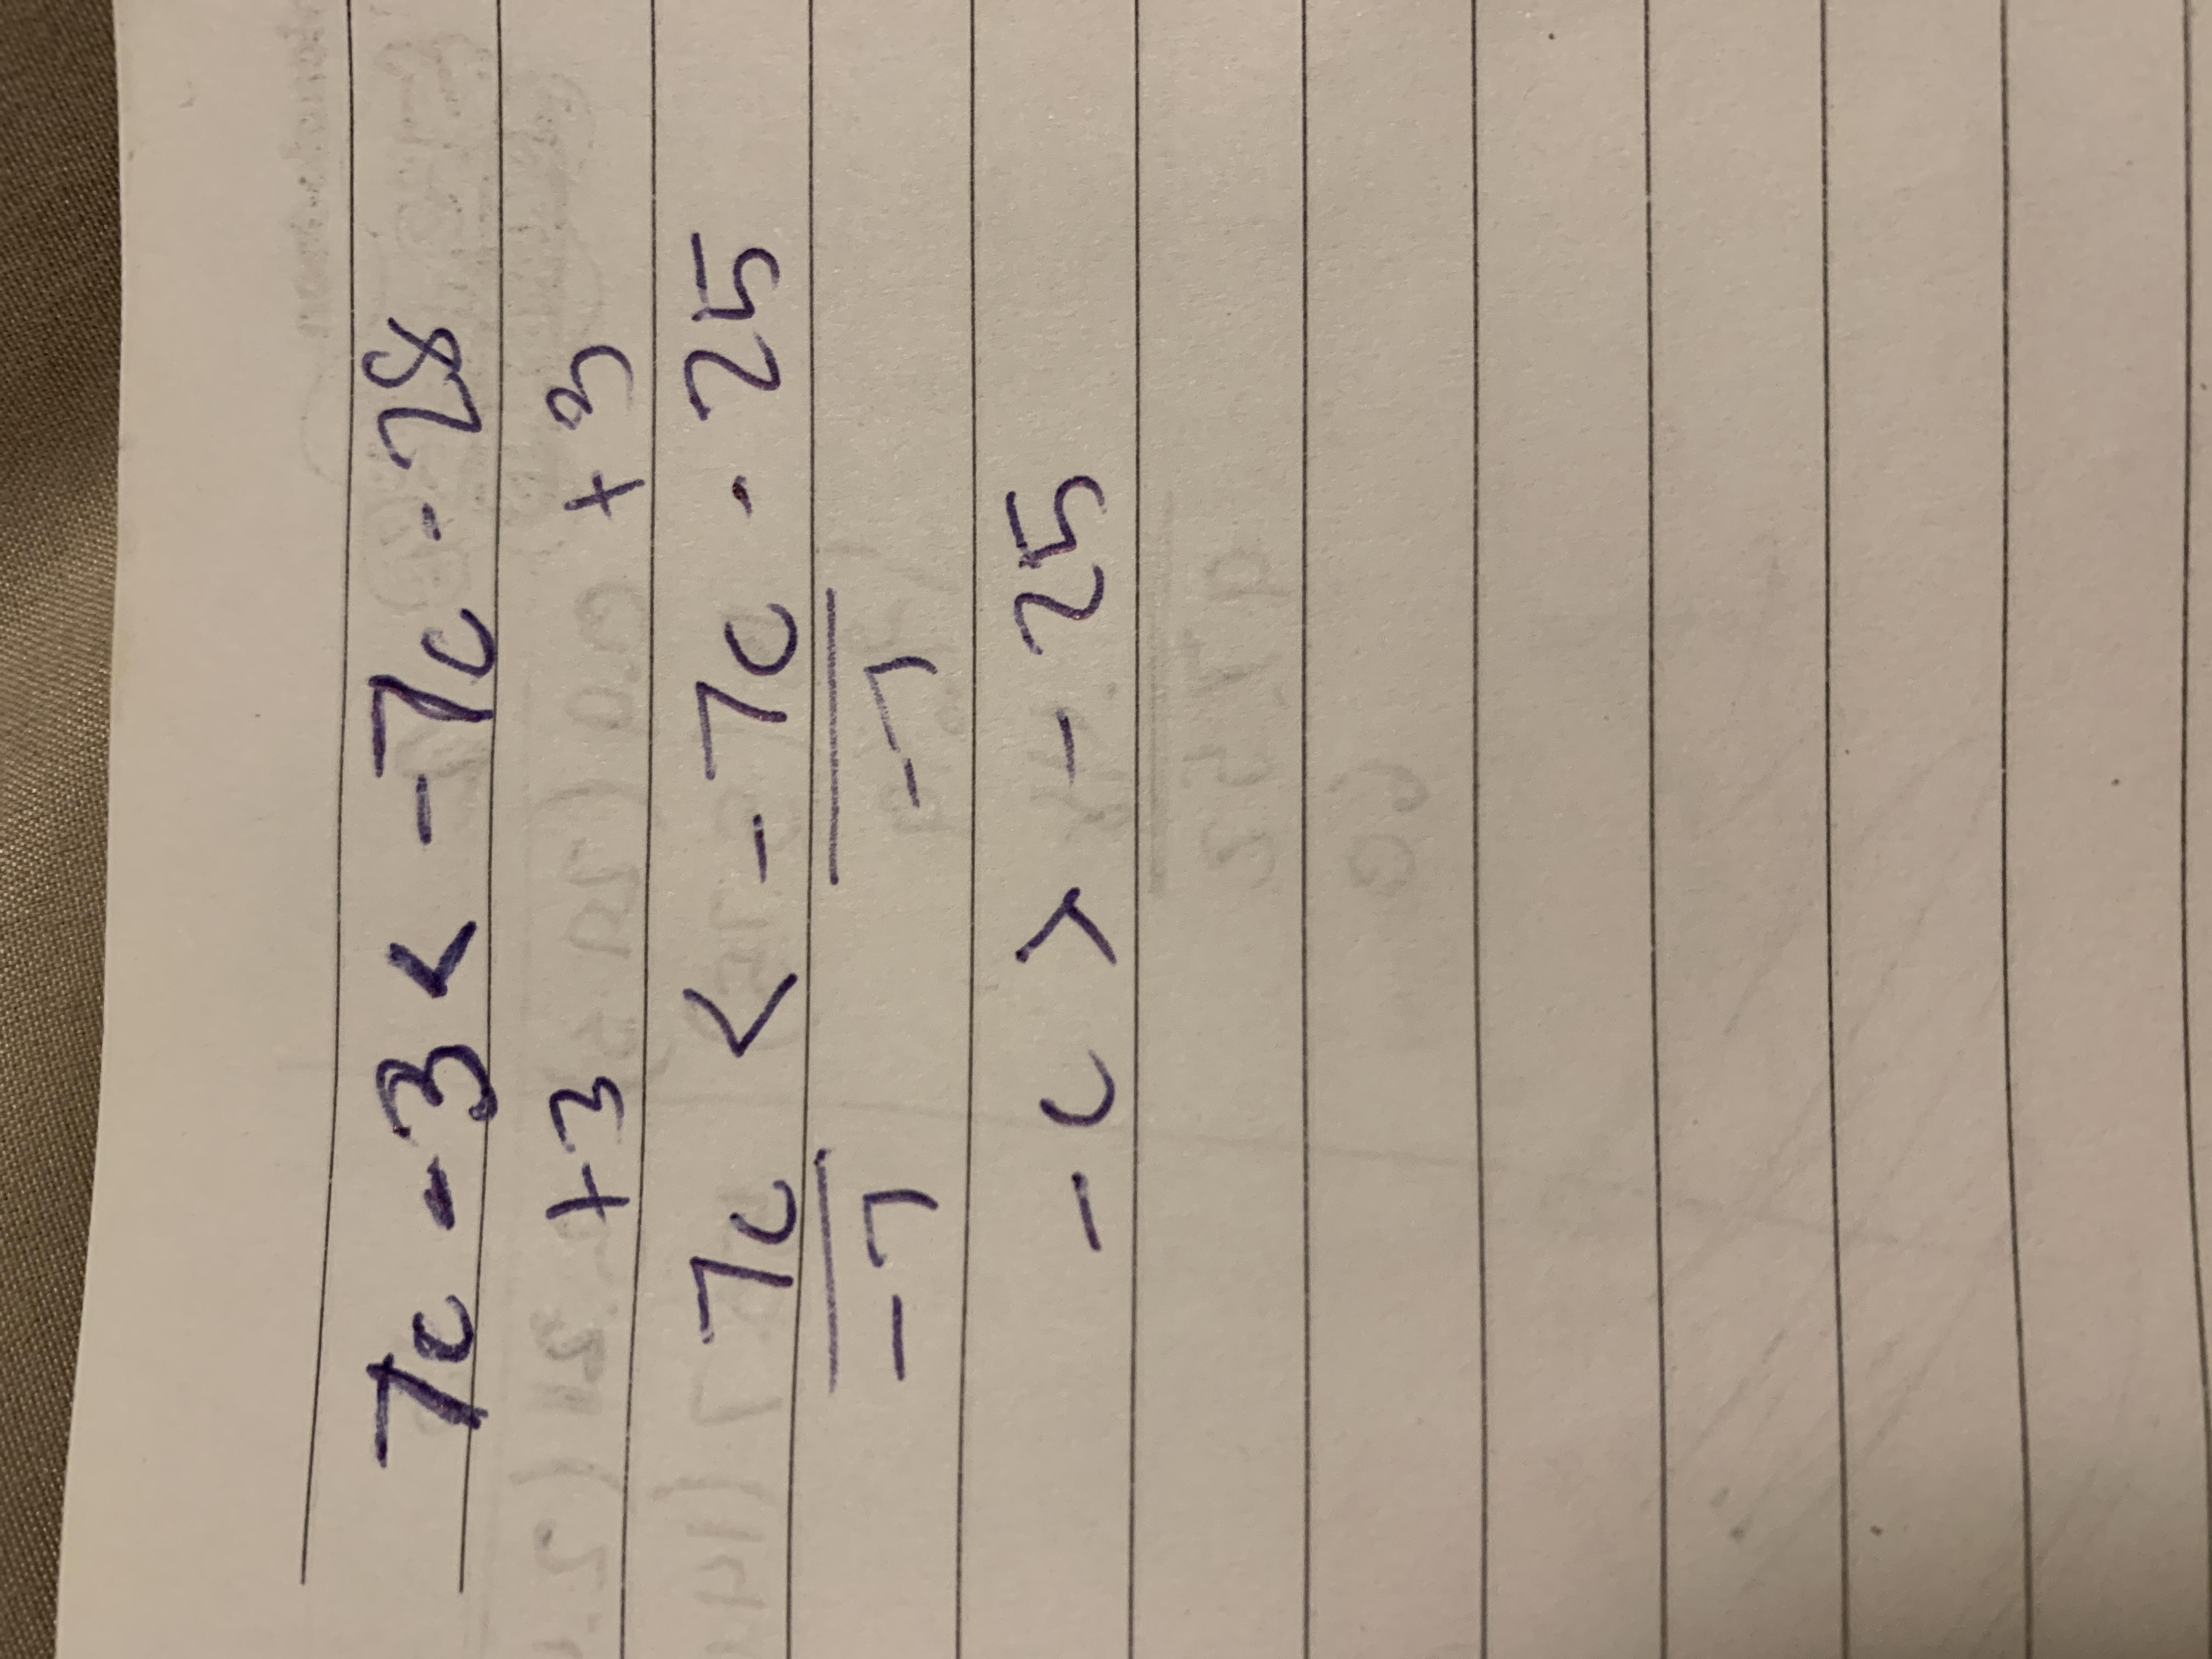 7c - 3 < -7c - 28
+3 +3
7c < -7c - 25
-7 -7
-c > - 25